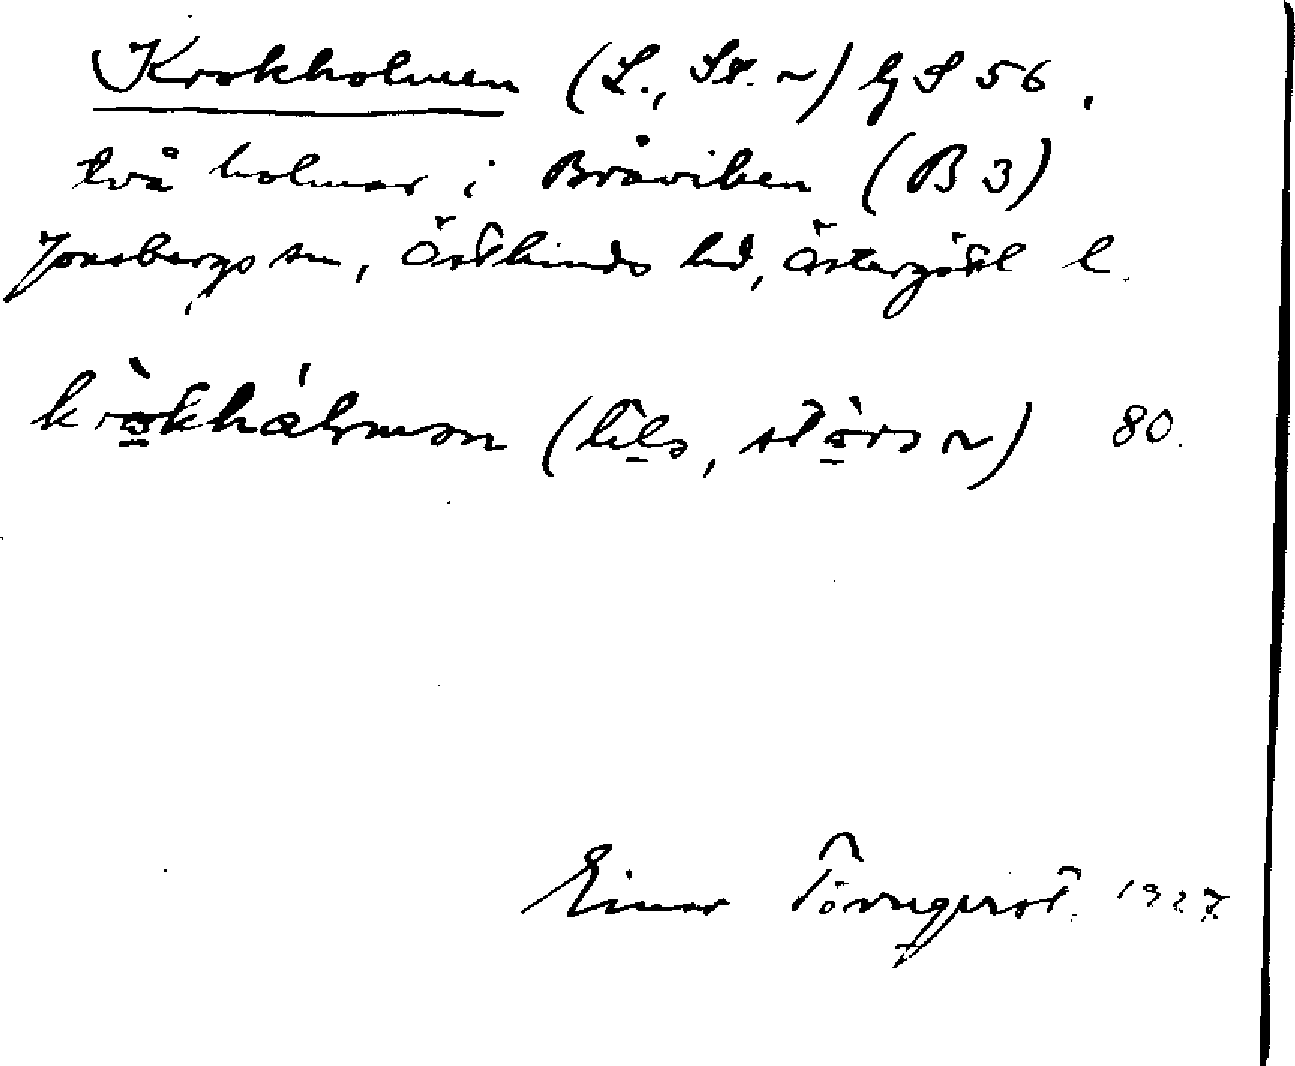 Krokholmen (L., St. ~) GS 56.
två holmar i Bråviken (B 3)
Jonsbergs sn, Östkinds hd, Östergötl l.
krokhalmən (lilə, storə ~) 80.
Einar Törnqvist. 1927